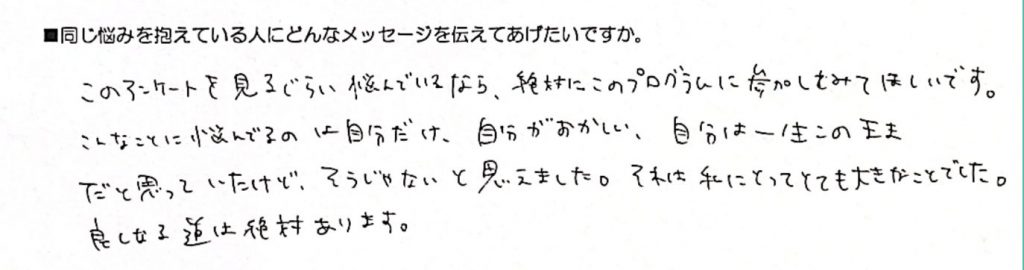 ■同じ悩みを抱えている人にどんなメッセージを伝えてあげたいですか。
このアンケートを見るぐらい悩んでいるなら、絶対にこのプログラムに参加してみてほしいです。
こんなことに悩んでるのは自分だけ、自分がおかしい、自分は一生このまま
だと思っていたけど、そうじゃないと思えました。それは私にとってとても大きなことでした。
良くなる道は絶対あります。